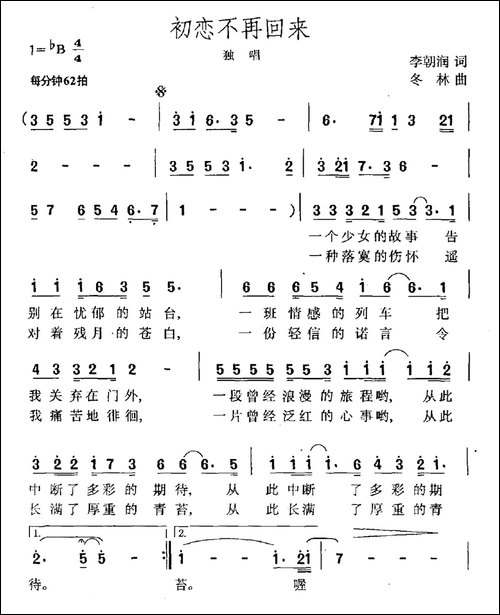 初恋不再回来
1=♭B 4/4
独 唱
李朝润 词
每分钟62拍
冬 林 曲
(3 5 5 3 1 - 3 1 6. 3 5 - - 6. 7 1 1 3 2 1
2 - - - 3 5 5 3 1. 2 3 2 1 7. 3 6 -
5 7 6 5 4 6. 7 1 - - ) 3 3 3 3 2 1 5 3 3. 1
一个少女的故事 告
一种落寞的伤怀 遥
1 1 1 6 3 5 5. 6 6 6 5 4 1 6 6. 1
别在忧郁的站台, 一班情感的列车 把
对着残月的苍白, 一份轻信的诺言 令
4 3 3 2 1 2 - 5 5 5 5 5 5 3 1 1 1 1 2
我关弃在门外, 一段曾经浪漫的旅程哟, 从此
我痛苦地徘徊, 一片曾经泛红的心事哟, 从此
3 2 2 1 7 3 6 6 6. 5 1 1 1 1. 6 4 3 2 3
中断了多彩的期待, 从此中断 了多彩的期
长满了厚重的青苔, 从此长满 了厚重的青
1. 2.
2. 5 5 - :‖ 1 - - 1. 2 1 7 - - -
待。 苔。 喔